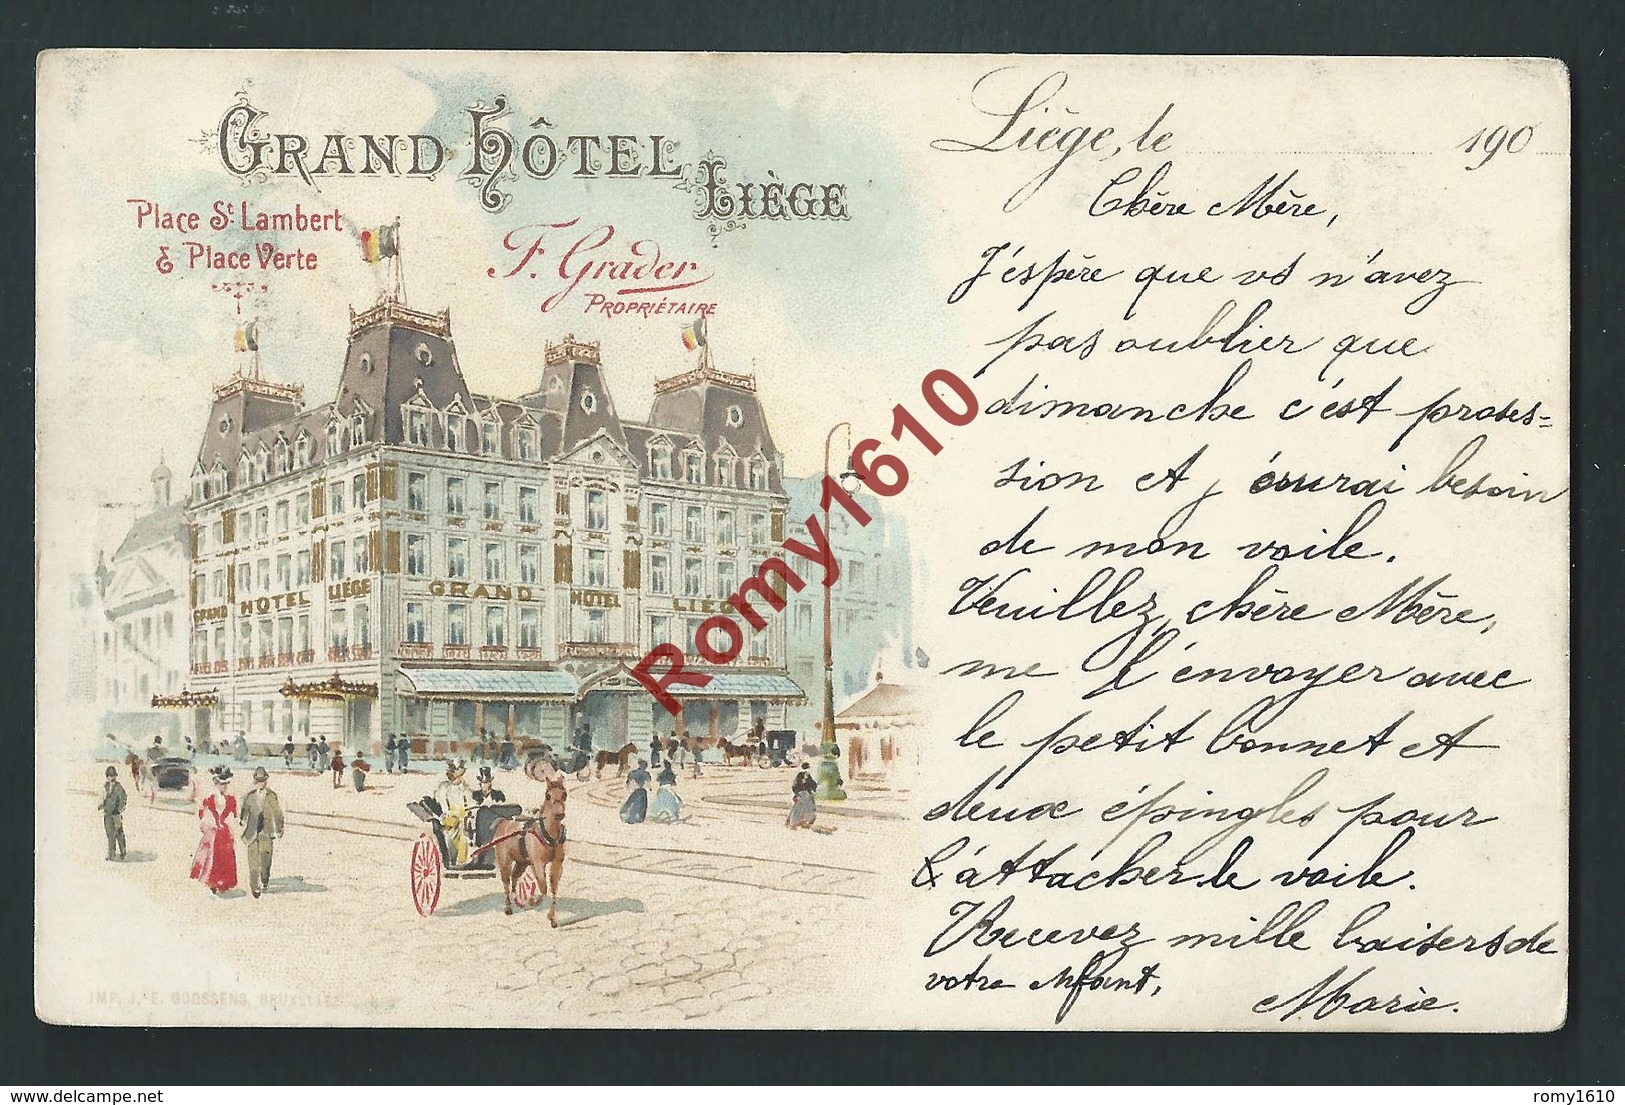 GRAND HÔTEL
LIÈGE
Place St. Lambert
& Place Verte
F. Grader
PROPRIÉTAIRE
GRAND HÔTEL LIÉGE
GRAND HOTEL LIÉG
IMP. J.-E. GOOSSENS, BRUXELLES
Romy1610
Liège, le 190
Chère Mère,
J'éspère que vs n'avez
pas oublier que
dimanche c'est proses=
sion et j' besoin
de mon voile.
Veuillez, chère Mère,
me l'envoyer avec
le petit bonnet et
deux épingles pour
attacher le voile.
Recevez mille baisers de
votre enfant,
Marie.
delcampe.net
romy1610